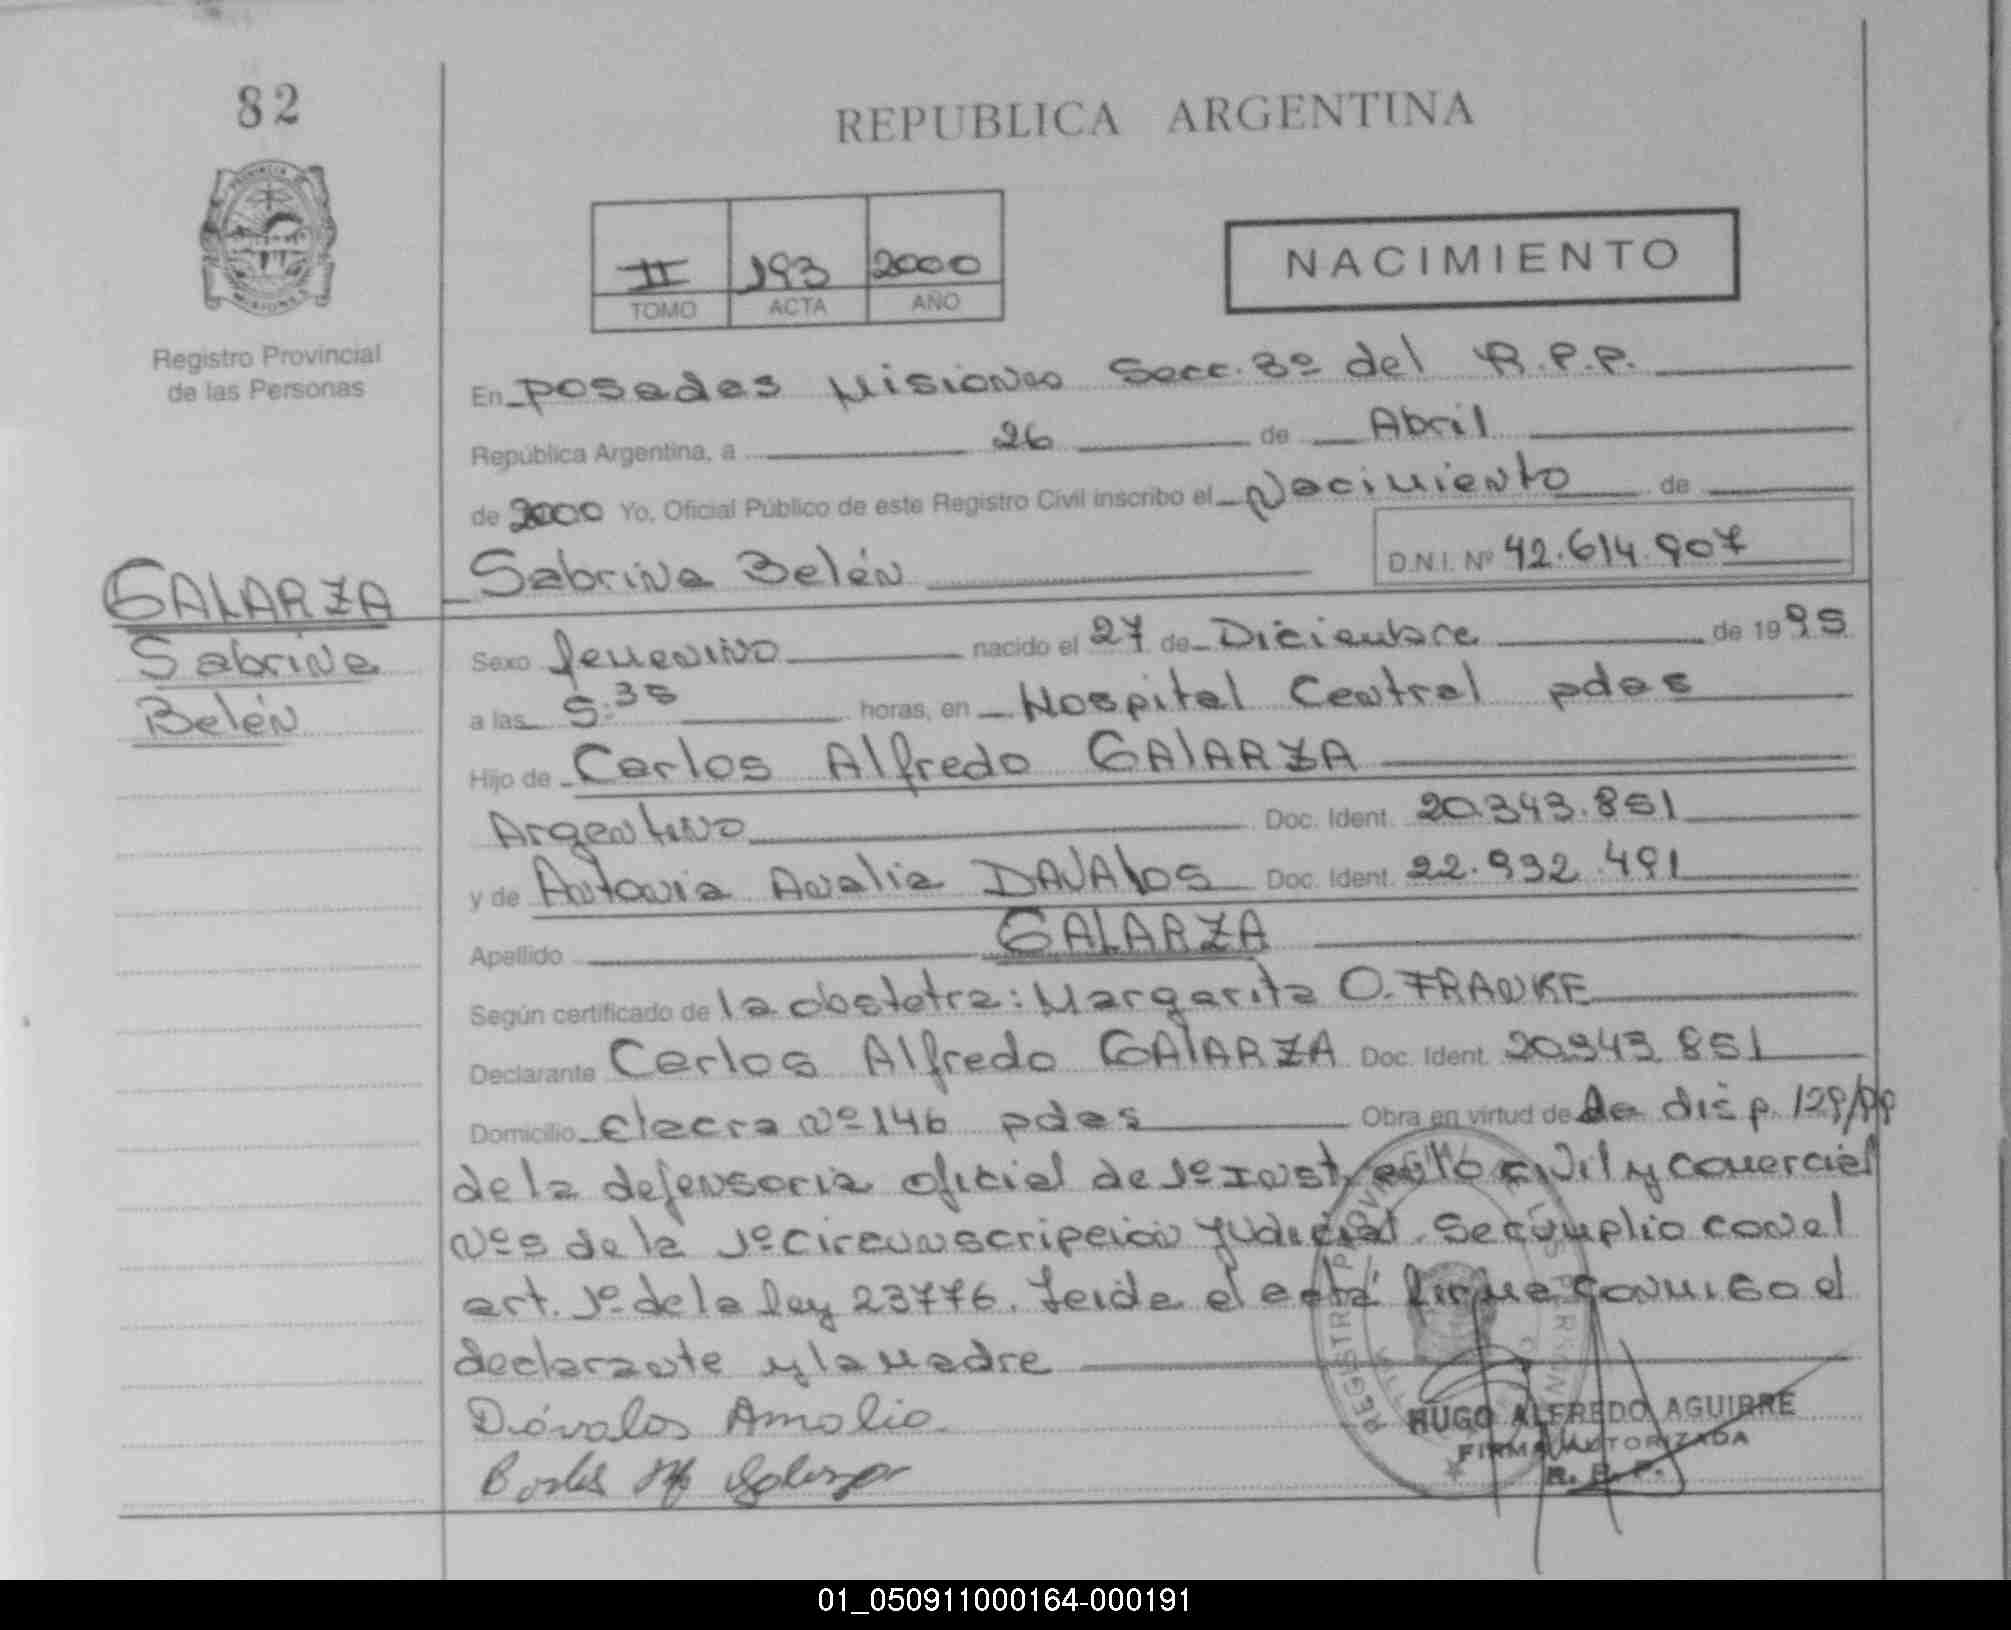 82
REPUBLICA ARGENTINA
PROVINCIA DE MISIONES
Registro Provincial
de las Personas
II 193 2000
TOMO ACTA AÑO
NACIMIENTO
En Posadas Misiones Secc. 3º del R.P.P.
República Argentina, a 26 de Abril
de 2000 Yo, Oficial Público de este Registro Civil inscribo el Nacimiento de
Sabrina Belén D.N.I. Nº 42.614.907
GALARZA
Sabrina
Belén
Sexo femenino nacido el 27 de Diciembre de 1995
a las 5:35 horas, en Hospital Central pdas
Hijo de Carlos Alfredo GALARZA
Argentino Doc. Ident. 20.343.851
y de Antonia Analia DAVALOS Doc. Ident. 22.992.491
Apellido GALARZA
Según certificado de la obstetra: Margarita O. FRANKE
Declarante Carlos Alfredo GALARZA Doc. Ident. 20.343.851
Domicilio nº 146 pdas Obra en virtud de disp. 129/99
de la defensoria oficial de 1º Inst. en lo civil y comercial
nº 5 de la 1º circunscripción Judicial. Se cumplio con el
art. 1º de la ley 23776. Leida el acta firma conmigo el
declarante y la madre
Dávalos Amalia
HUGO ALFREDO AGUIRRE
FIRMA AUTORIZADA
R. P. P.
01_050911000164-000191